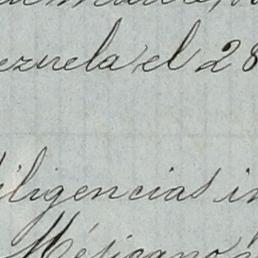 ezuela el 28
diligencias in
Mexicano